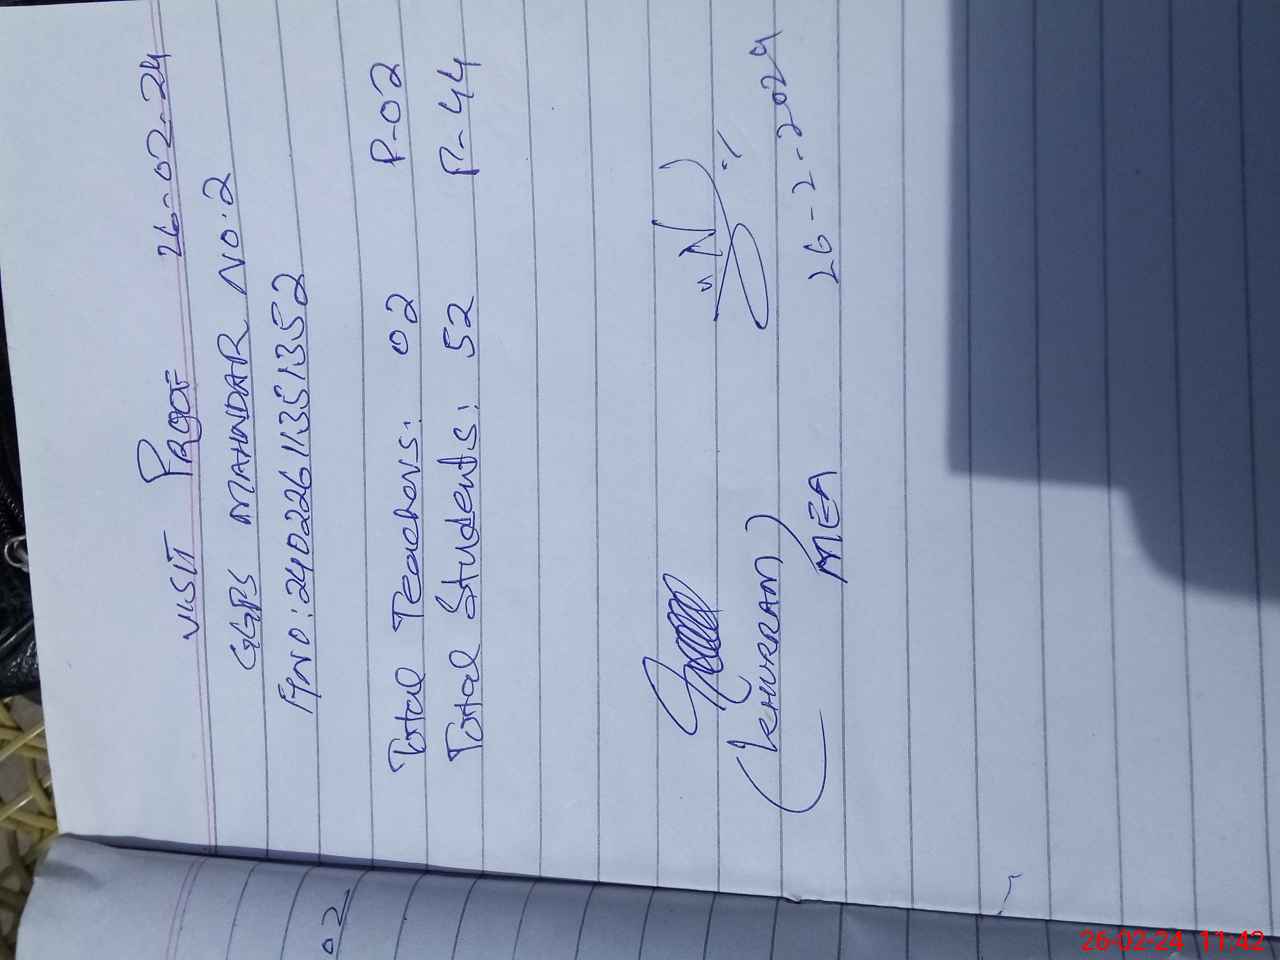 VISIT PROOF 26-02-24
GGPS MAHNDAR NO.2
FNO: 24022611351352
Total Teachers: 02 P-02
Total Students: 52 P-44
(KHURRAM)
MEA 26-2-2024
02
26-02-24 11:42